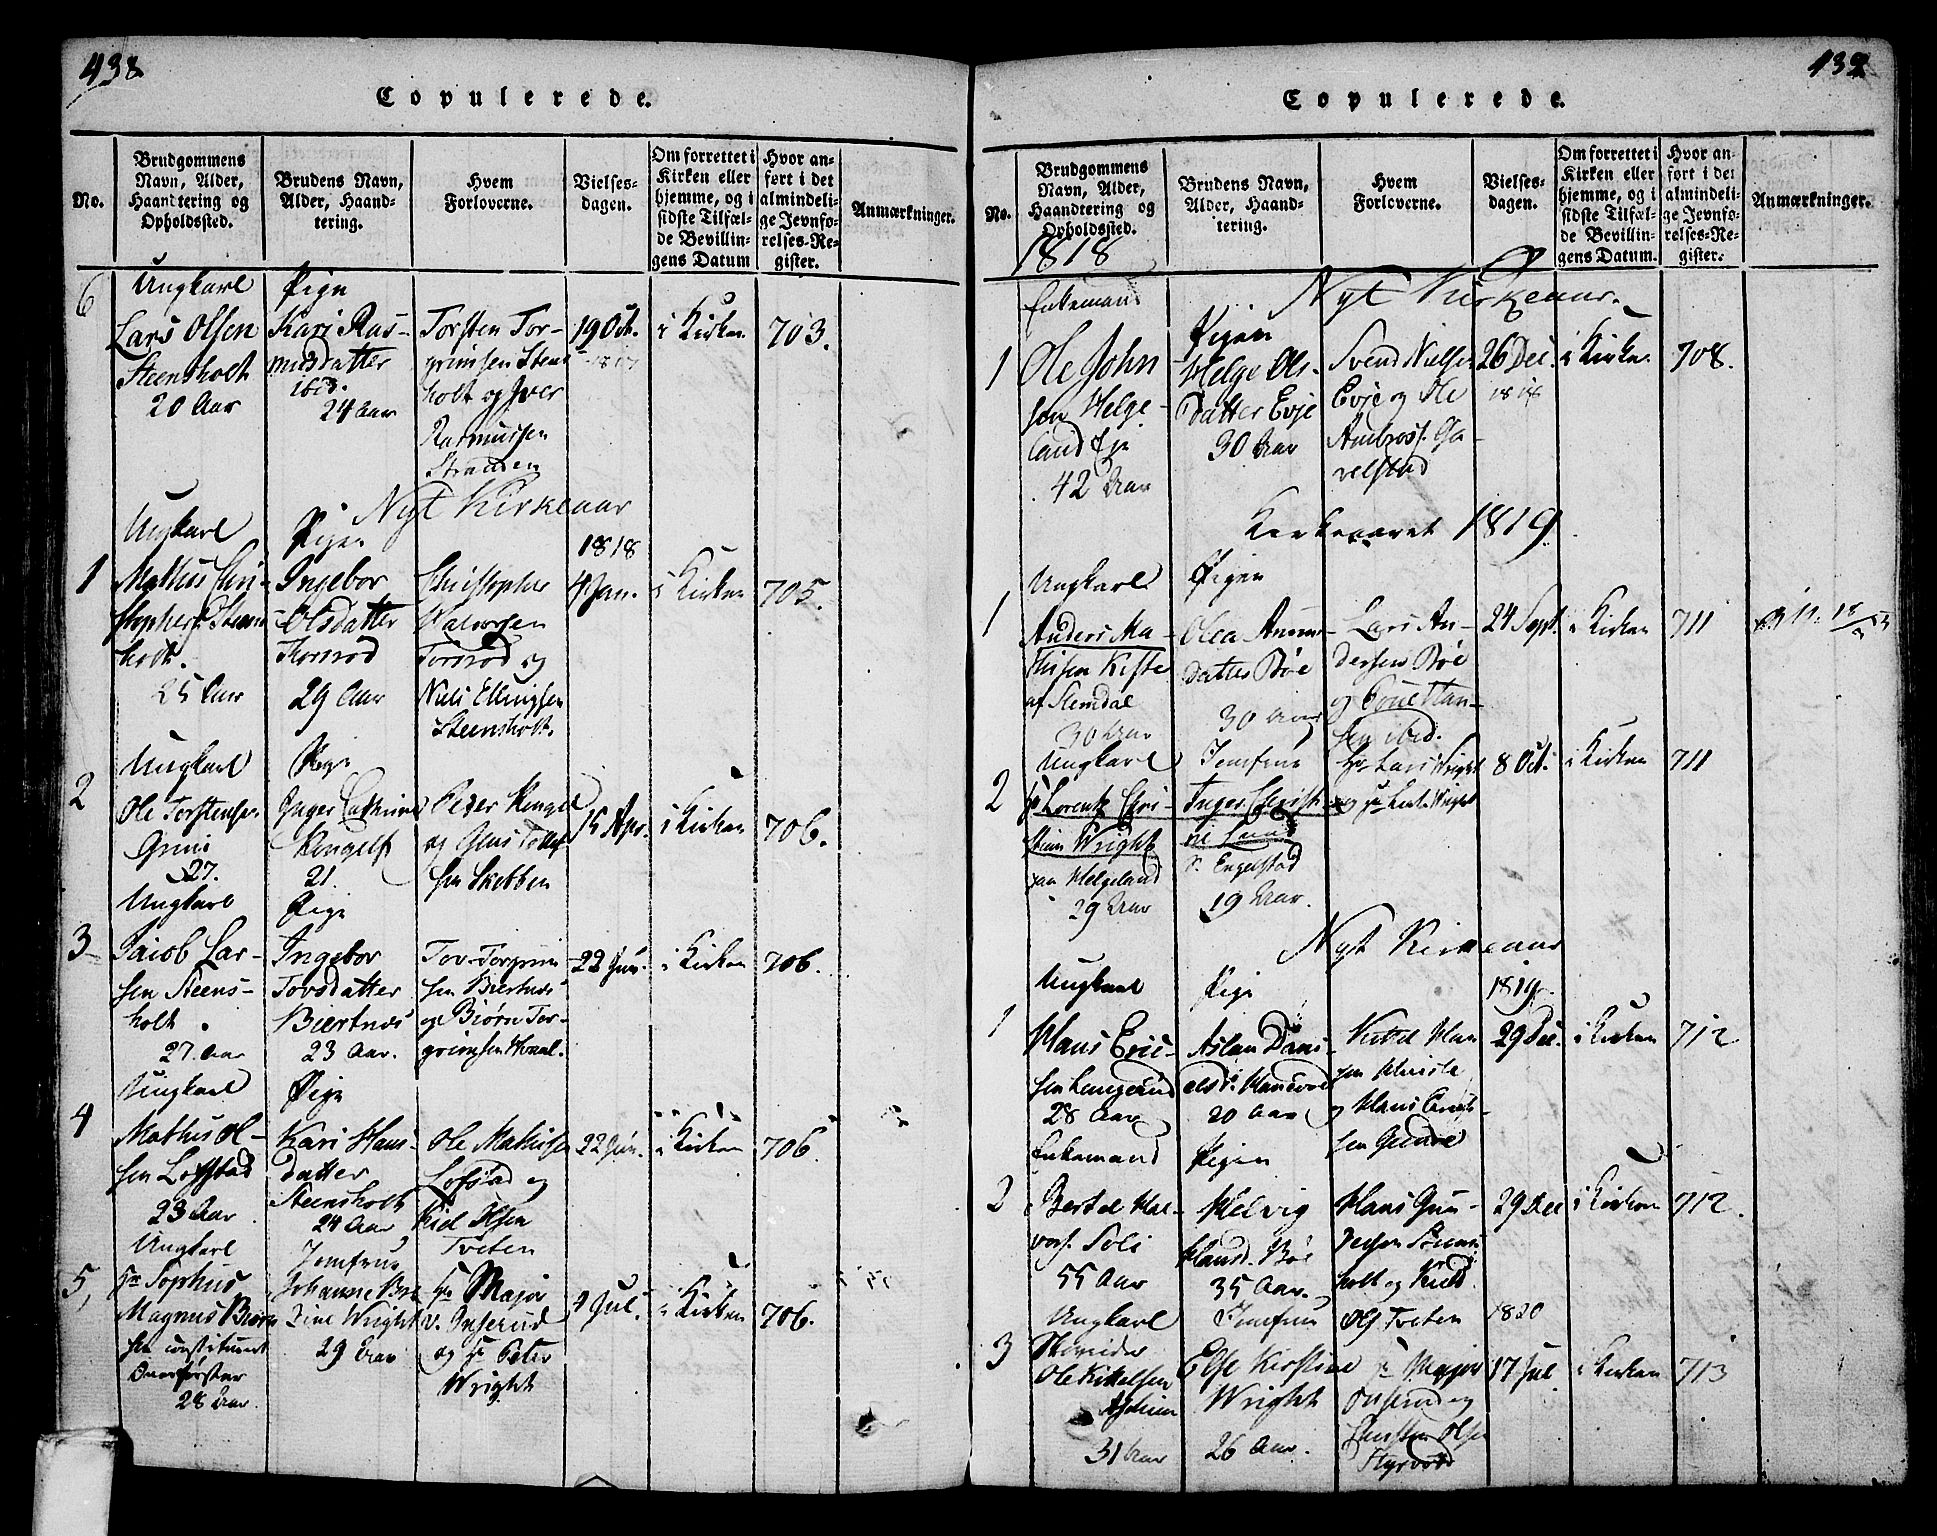 438
Copulerede.
No.
Brudgommens Navn, Alder, Haandtering og Opholdssted.
Brudens Navn, Alder, Haandtering.
Hvem Forloverne.
Vielsesdagen.
Om forrettet i Kirken eller hjemme, og i sidste Tilfælde Bevillingens Datum
Hvor anført i det almindelige Jevnførelses-Register.
Anmærkninger.
6
Ungkarl
Lars Olsen
Steensholt
20 Aar
Pige
Kari Ras-
musdatter
ibid.
24 Aar
Torsten Tor-
grimsen Steens
holt og Iver
Rasmussen
Stranden
19 Oct.
1817
i Kirken
703.
Nyt Kirkeaar
1818
1
Ungkarl
Mathis Chri-
stophers. Steens
holt.
25 Aar
Pigen
Ingebor
Olsdatter
Thorsrød
29 Aar
Christopher
Halvorsen
Torsrød og
Niels Ellingsen
Steensholt.
4 Jan.
i Kirken
705.
2
Ungkarl
Ole Torstensen
Gruii
27.
Pige
Inger Cathrine
Kengelf
21.
Peder Kengel
og
sen Skebben
15 Apr.
i Kirken
706.
3
Ungkarl
Jacob Lar-
sen Steens-
holt.
27 Aar
Pige
Ingebor
Tovsdatter
Biertnæs
23 Aar.
Tov Torgrim
sen Biertnæs
og Biørn Tor-
grimsen Honal.
22 Jun.
i Kirken
706.
4
Ungkarl
Mathis Ol-
sen Lofstad
23 Aar
Pige
Kari Hans
datter
Steensholt
24 Aar
Ole Mathisen
Lofstad og
Kield Olsen
Tveten
22 Jun.
i Kirken
706.
5,
Ungkarl
Hr Sophus
Magnus Biørn
sen constitueret
Overførster
28 Aar.
Jomfrue
Johanne Bol
Wright
29 Aar
Hr Major
v. Onserud
og Hr Peter
Wright
4 Jul.
i Kirken
706.
439
Copulerede.
No.
Brudgommens Navn, Alder, Haandtering og Opholdssted.
Brudens Navn, Alder, Haandtering.
Hvem Forloverne.
Vielsesdagen.
Om forrettet i Kirken eller hjemme, og i sidste Tilfælde Bevillingens Datum.
Hvor anført i det almindelige Jevnførelses-Register.
Anmærkninger.
1818
Nyt Kirkeaar.
1
Enkemand
Ole John
sen Helge-
land Eje
42 Aar
Pigen
Helge Ols-
datter Evje
30 Aar
Svend Nielsen
Evje og Ole
Ambros. Ga-
relstad
26 Dec.
1818
i Kirken
708.
Kirkeaaret 1819.
1
Ungkarl
Anders Ma-
thisen Kiste
af Slemdal
30 Aar
Pigen
Olea Anun
datter Bøe
30 Aar
Lars An-
dersen Bøe
og Poul Han-
sen ibid.
24 Sept.
i Kirken
711
2
Ungkarl
Hr Lorentz Chri-
stian Wright
paa Helgeland
29 Aar
Jomfrue
Inger Christi-
ne Lund
v. Engelstad
19 Aar.
Hr Lars Wright
og Hr Wright
8 Oct.
i Kirken
711
Nyt Kirkeaar
1819.
1
Ungkarl
Hans Eric-
sen Langerud
28 Aar
Pige
Aslau Dani-
elsd. Hansvold
20 Aar
Kittel Han
sen
og Hans
sen
29 Dec.
i Kirken
712
2
Enkemand
Bertel Hal-
vors. Soli
55 Aar
Pigen
Helvig
Hansd. Bøe
35 Aar.
Hans Gun-
holt og Kield
Ols. Tveten
29 Dec
i Kirken
712.
3
Ungkarl
Ole Kittelsen
31 Aar
Jomfrue
Else Kirstine
Wright
26 Aar.
Hr Major
Onserud og
Olsen
1820
17 Jul
i Kirken
713